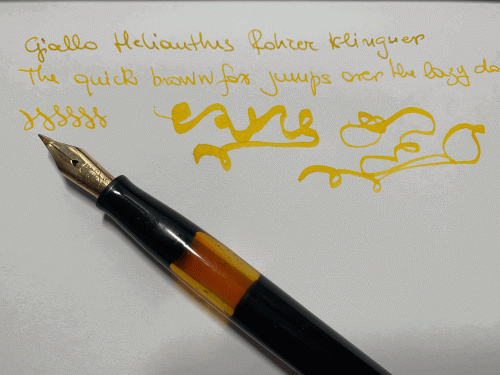 Giallo Helianthus Rohrer Klinguer
The quick brown fox jumps over the lazy do